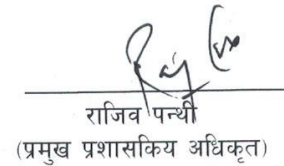 राजिव पन्थी
(प्रमुख प्रशासकिय अधिकृत)